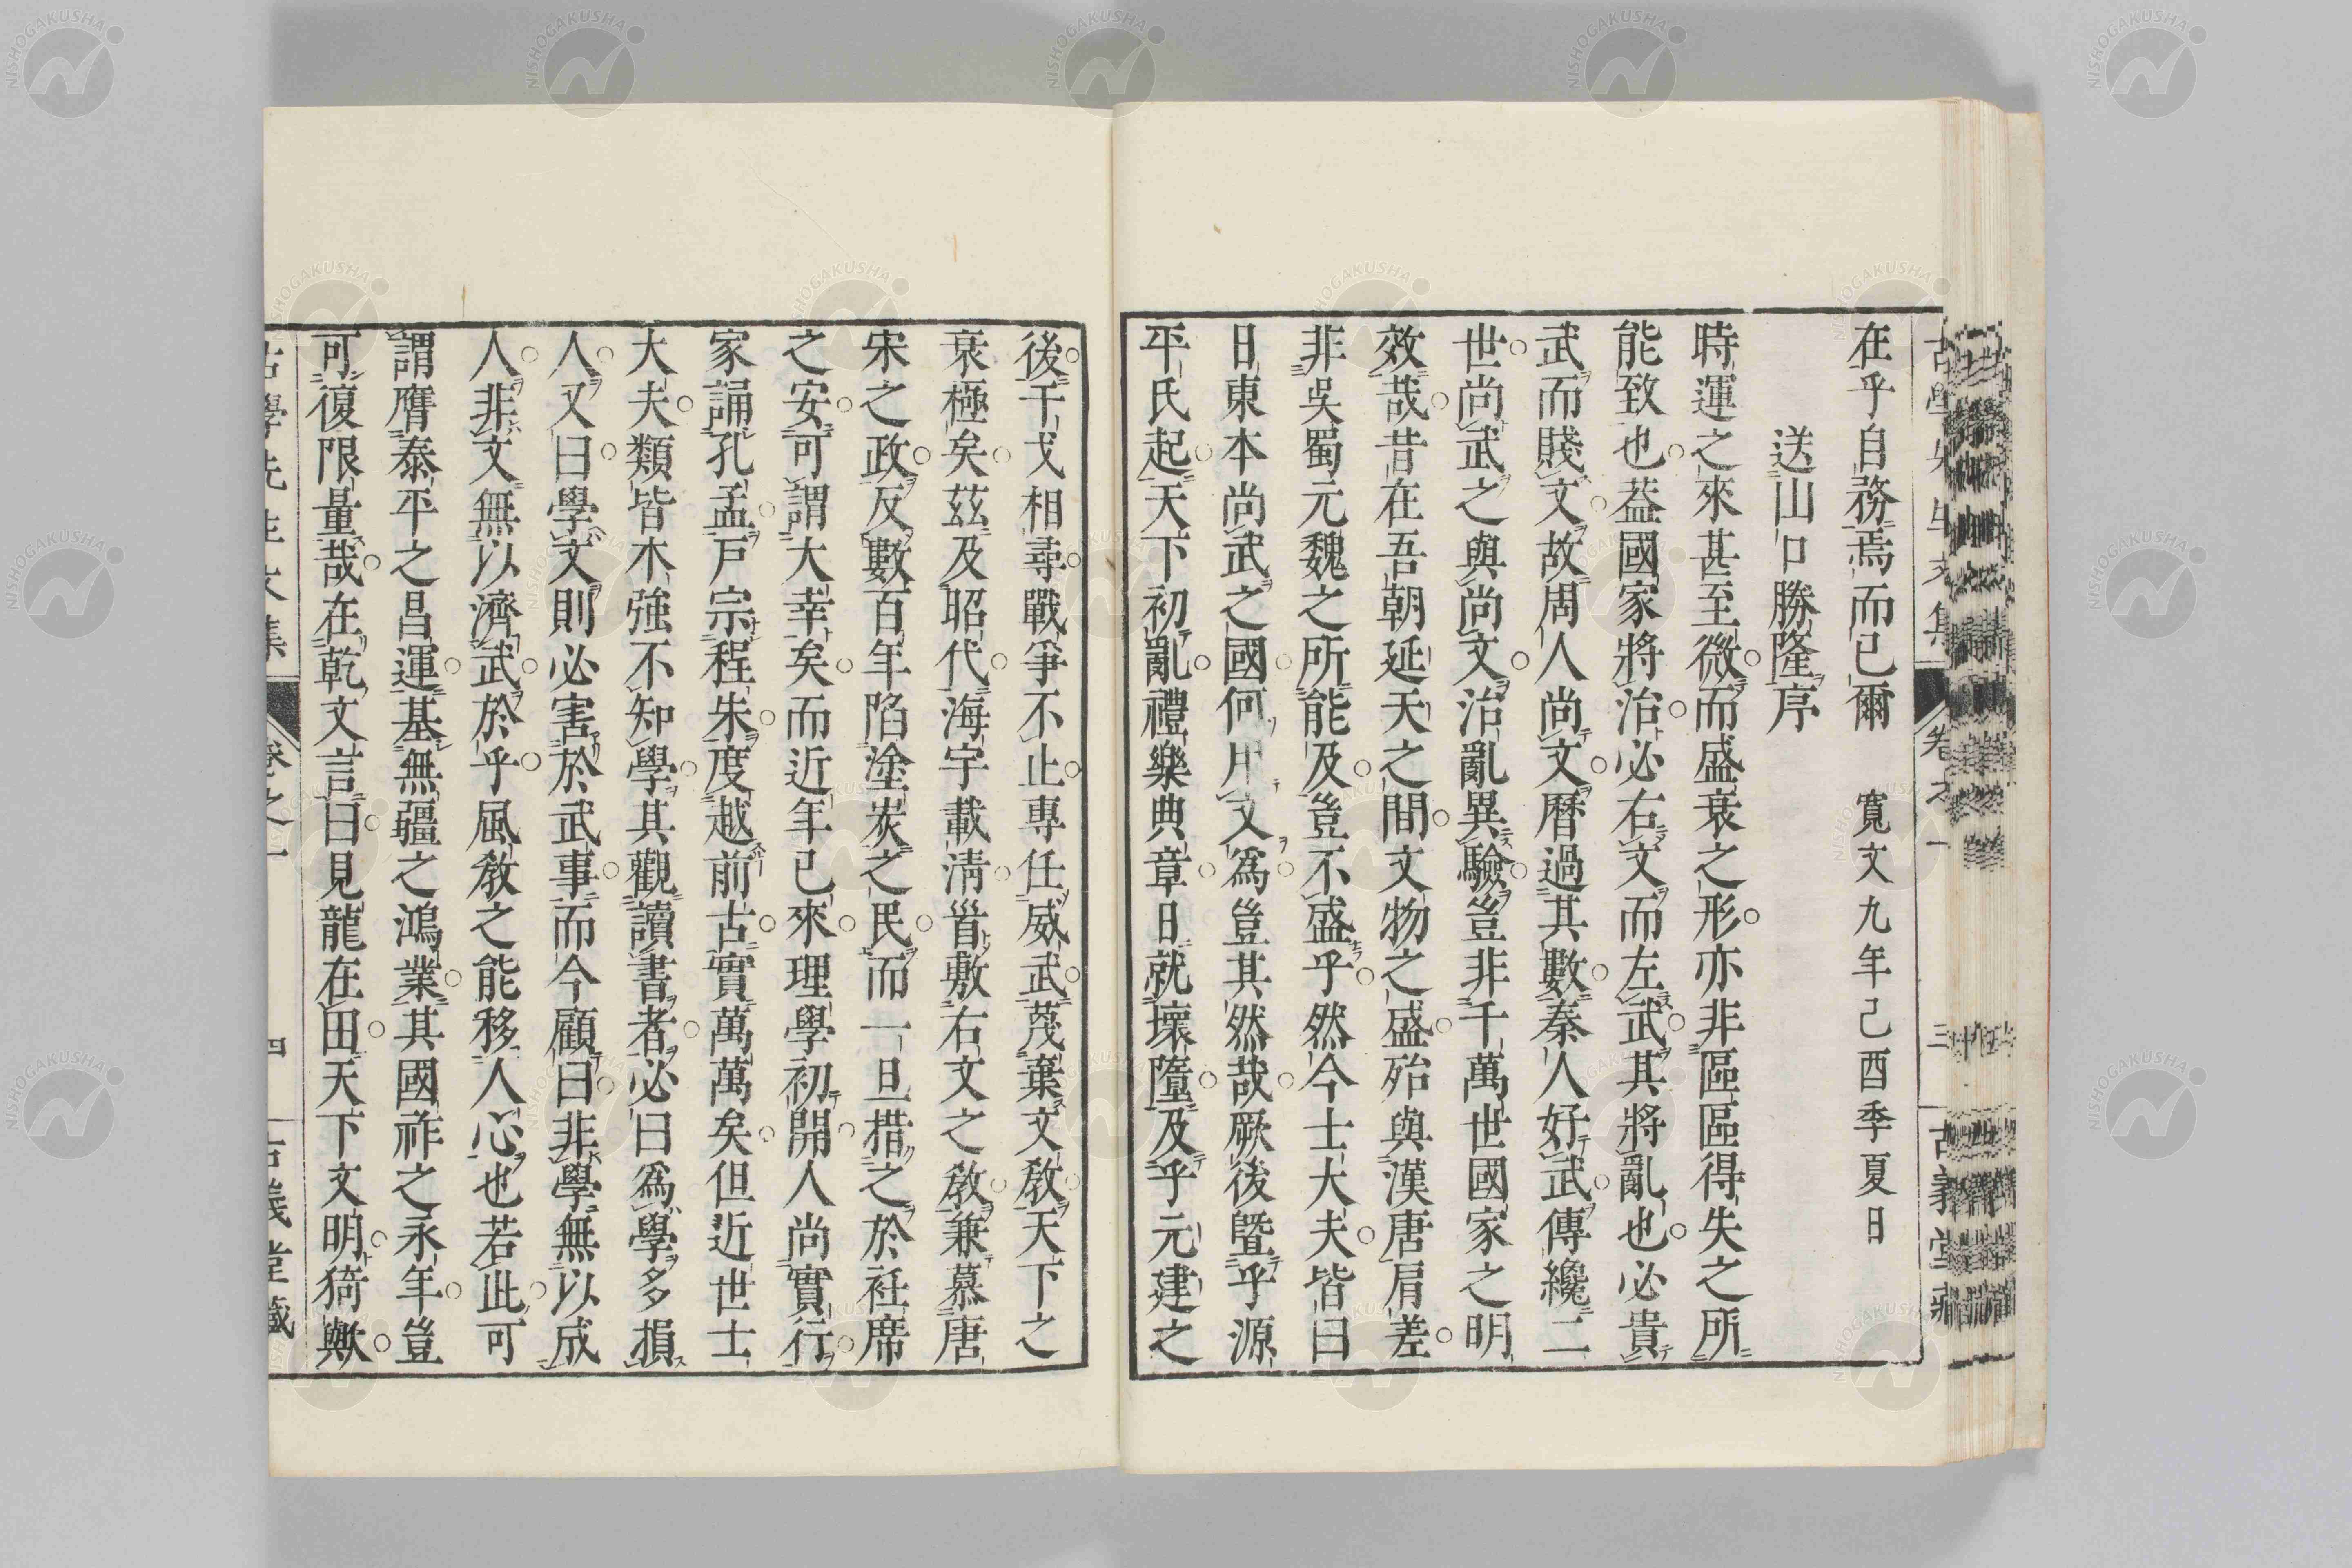 在乎自務焉而已爾 寬文九年己酉季夏日
送山口勝隆序
時運之來甚至微而盛衰之形亦非區區得失之所
能致也葢國家將治必右文而左武其將亂也必貴
武而賤文故周人尚文曆過其數秦人好武傳纔二
世尚武之與尚文治亂異驗豈非千萬世國家之明
效哉昔在吾朝延天之間文物之盛殆與漢唐肩差
非吳蜀元魏之所能及豈不盛乎然今士大夫皆曰
日東本尚武之國何用文爲豈其然哉厥後曁乎源
平氏起天下初亂禮樂典章日就壞墮及乎元建之
後干戈相尋戰爭不止專任威武蔑棄文敎天下之
衰極矣茲及昭代海宇載淸首敷右文之敎兼慕唐
宋之政反數百年陷塗炭之民而一旦措之於衽席
之安可謂大幸矣而近年已來理學初開人尚實行
家誦孔孟戸宗程朱度越前古實萬萬矣但近世士
大夫類皆木強不知學其觀讀書者必曰爲學多損
人又曰學文則必害於武事而今顧曰非學無以成
人非文無以濟武於乎風敎之能移人心也若此可
謂膺泰平之昌運基無疆之鴻業其國祚之永年豈
可復限量哉在乾文言曰見龍在田天下文明猗歟
古學先生文集 卷之一 四 古義堂藏